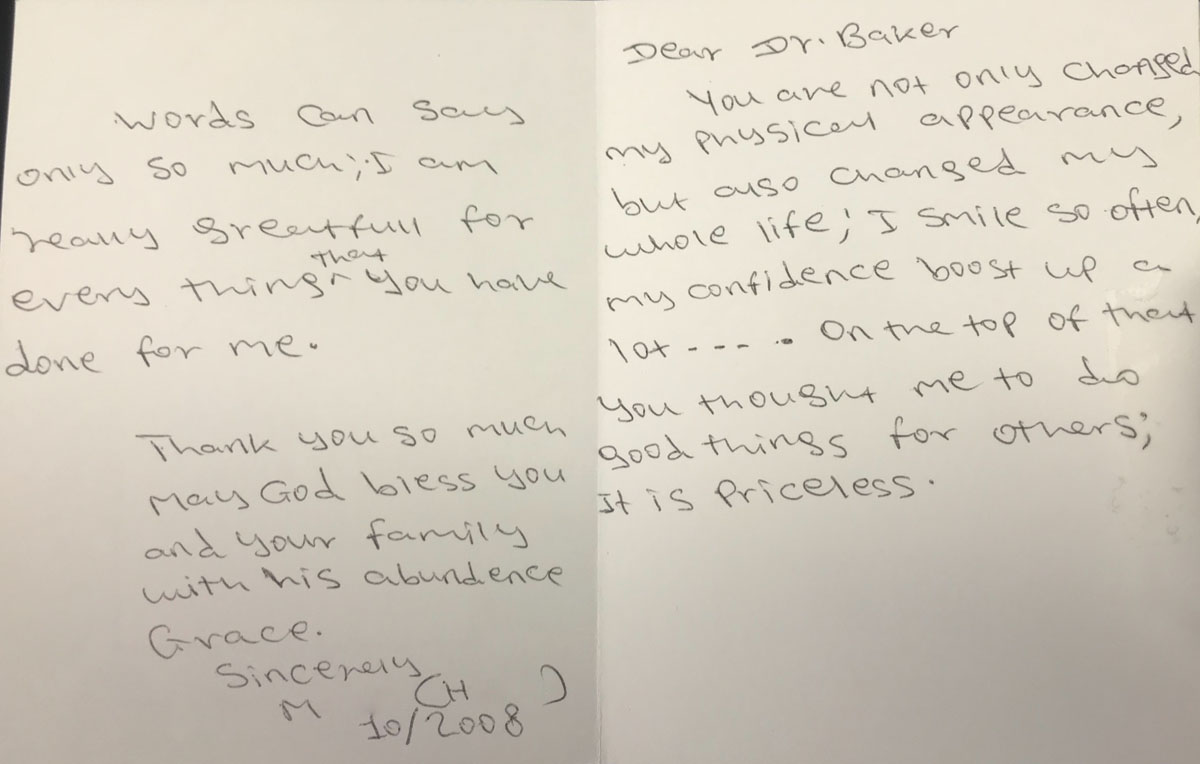 Words can say
only so much; I am
really greatfull for
every things ^ That you have
done for me.
Thank you so much
May God bless you
and your family
with his abundence
Grace.
Sincerely
M (H )
10/2008
Dear Dr. Baker
You are not only changed
my physical appearance,
but also changed my
whole life; I smile so often
my confidence boost up a
lot ----. On the top of that
you thought me to do
good things for others;
It is Priceless.